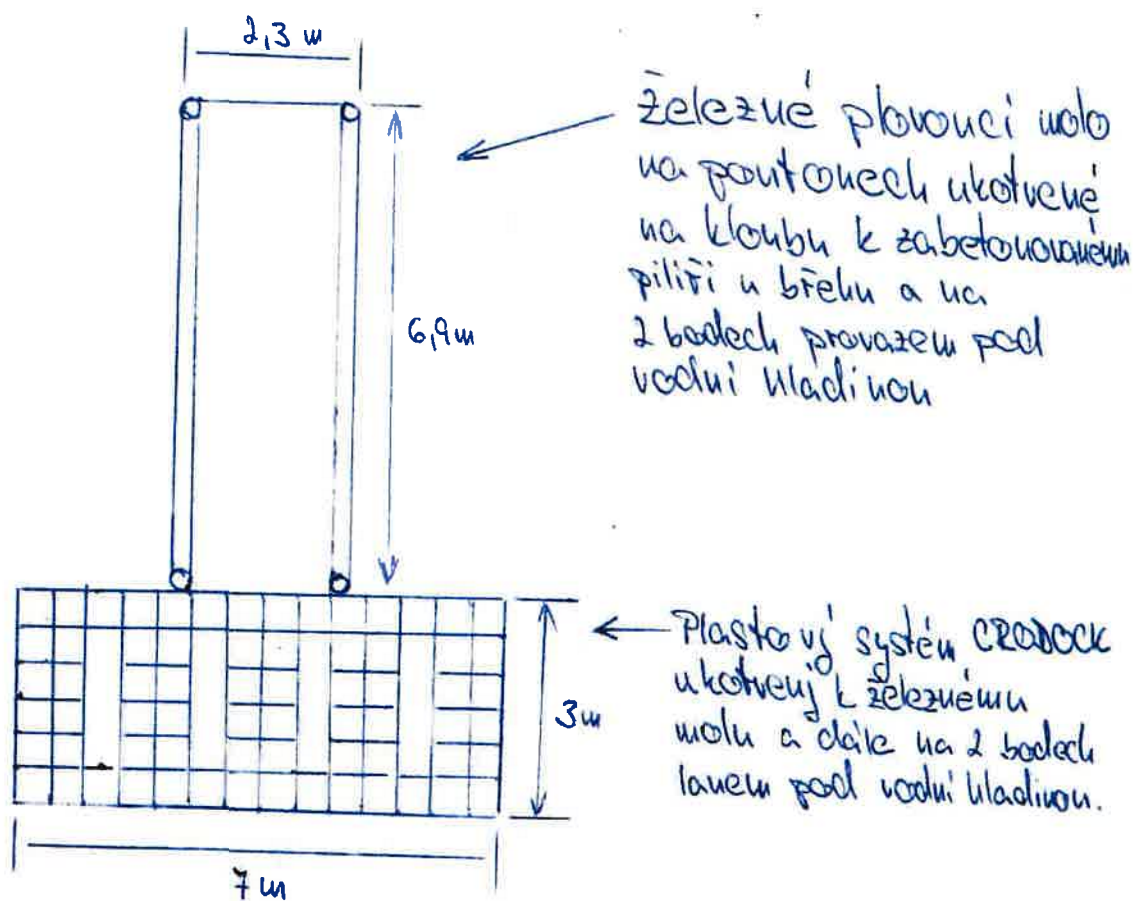 2,3 m
železné plovoucí molo
na pontonech ukotvené
na kloubu k zabetonovanému
pilíři u břehu a na
2 bodech provazem pod
vodní hladinou
6,9m
Plastový systém CRODOCK
ukotvený k železnému
molu a dále na 2 bodech
lanem pod vodní hladinou.
3m
7 m